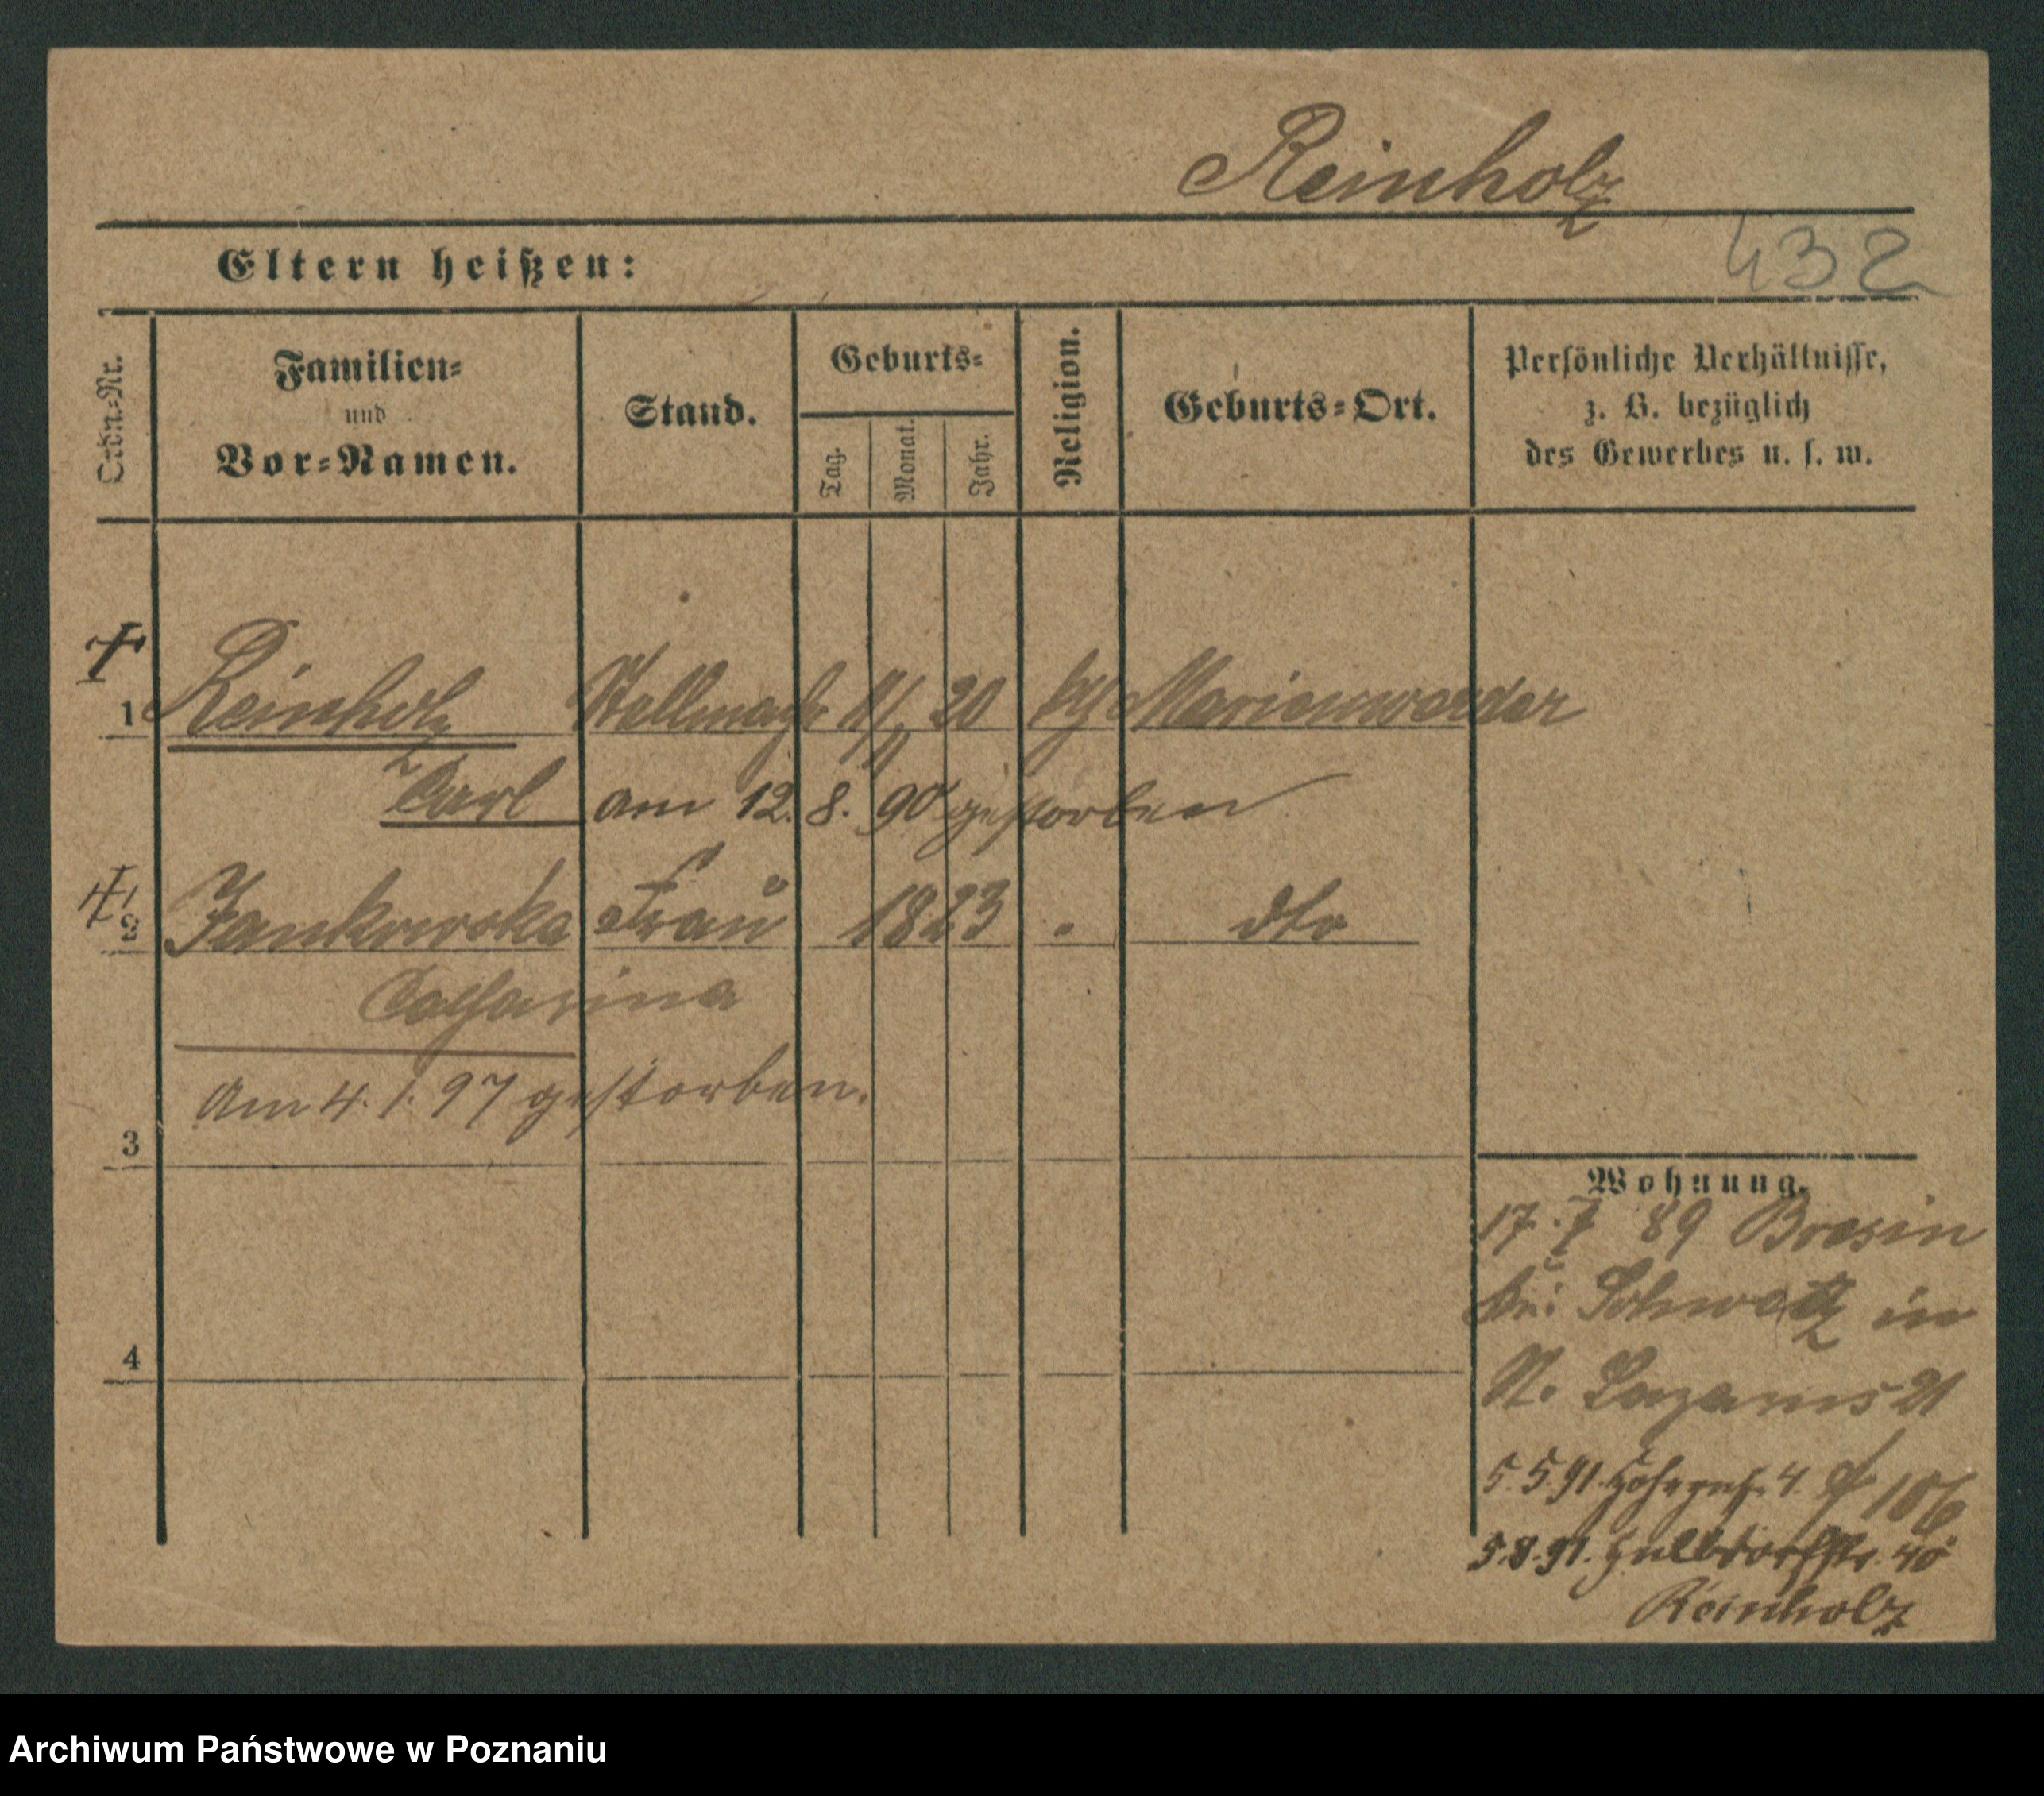 Reinholz
432
Eltern heißen:
Ordn.-Nr.
Familien-
und
Vor-Namen.
Stand.
Geburts-
Tag.
Monat.
Jahr.
Religion.
Geburts-Ort.
Persönliche Verhältnisse,
z. B. bezüglich
des Gewerbes u. s. w.
1 Reinholz Stellmach 20 kth Marienwerder
Carl am 12. 8. 90 gestorben
2 Jankowska Frau 1823 " dto
Catharina
Am 4. 1. 97 gestorben.
3
4
Wohnung.
17. 7 89 Bresin
bei Schwetz in
St. Lazarus 21
5.5.91. 4. 106
5.8.91. 40
Reinholz
Archiwum Państwowe w Poznaniu